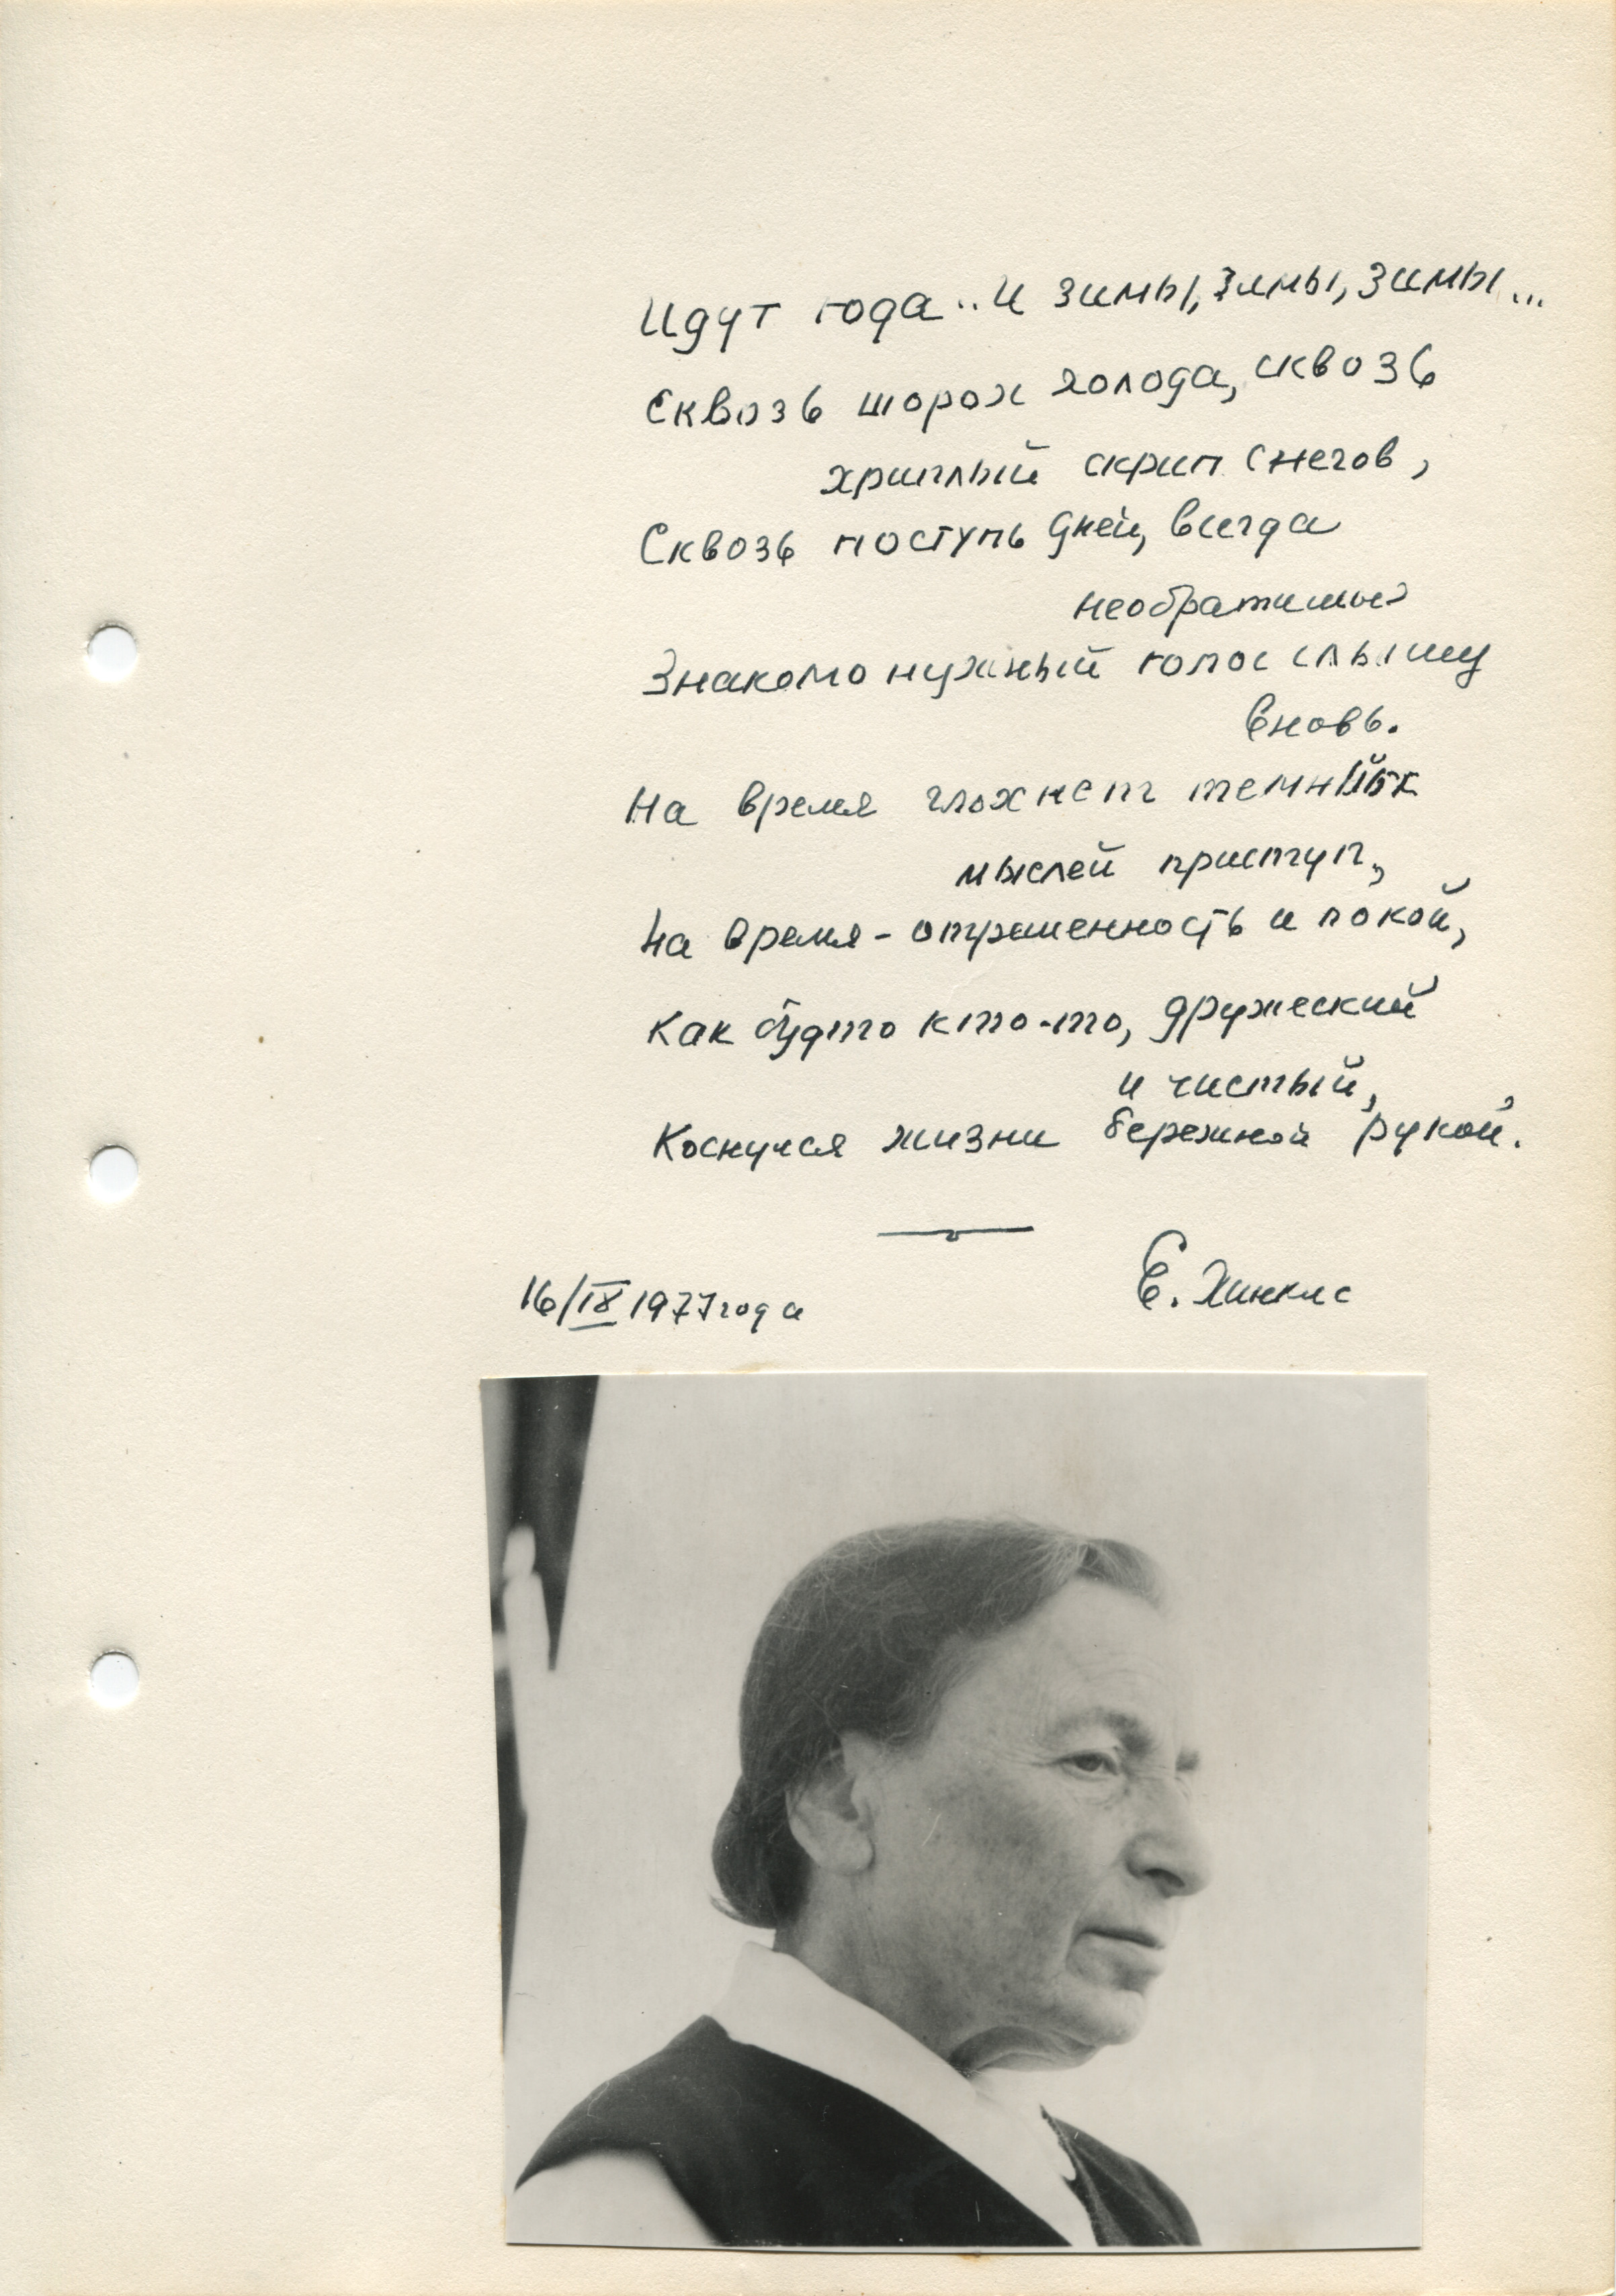 Идут года... И зимы, зимы, зимы...
Сквозь шорох холода, сквозь
хриплый скрип снегов,
Сквозь поступь дней, всегда
необратимых
Знакомо нужный голос слышу
вновь.
На время глохнет темных
мыслей приступ,
На время - отрешенность и покой,
Как будто кто-то, дружеский
и чистый,
Коснулся жизни бережной рукой.
16/IX 1977 года
Е. Хинкис